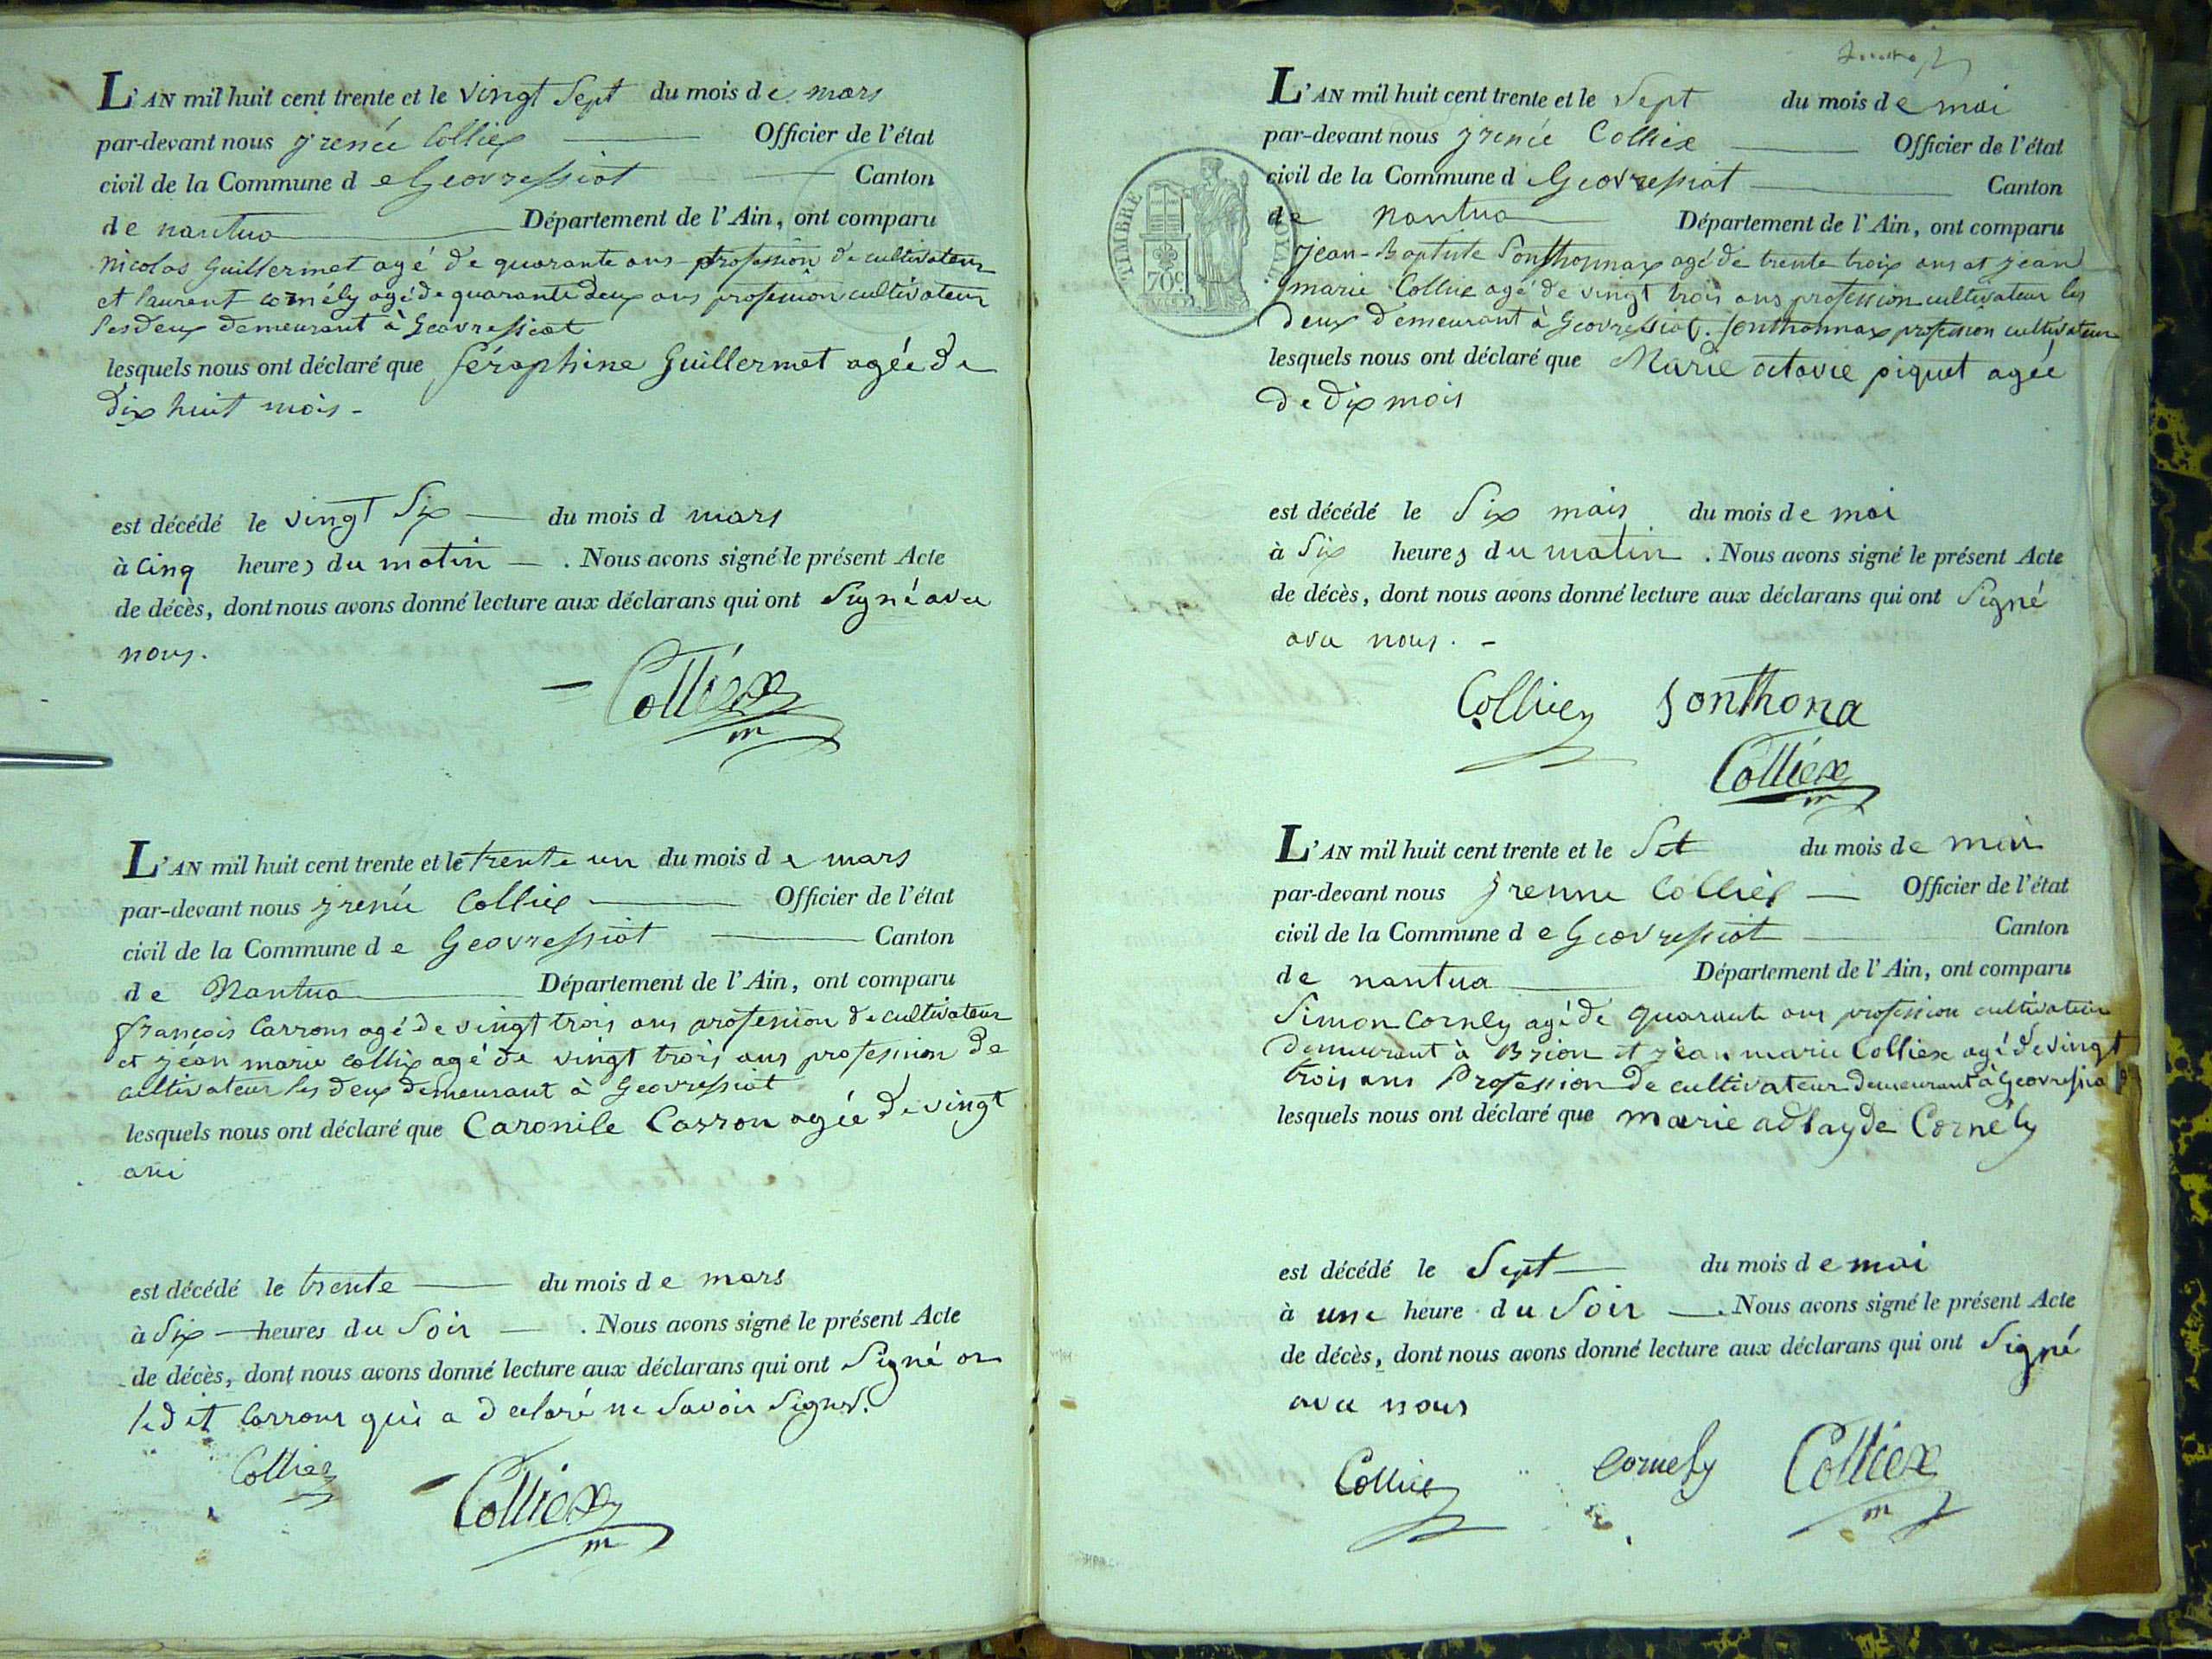 L'AN mil huit cent trente et le vingt Sept du mois de mars
par-devant nous jrenée Colliex Officier de l'état
civil de la Commune de Geovressiat Canton
de nantua Département de l'Ain, ont comparu
nicolas Guillermet agé de quarante ans profession de cultivateur
et laurent cornély agé de quarante deux ans profession cultivateur
les deux demeurant à Geovressiat
lesquels nous ont déclaré que Séraphine Guillermet agée de
dix huit mois -
est décédé le vingt Six du mois d mars
à cinq heures du matin . Nous avons signé le présent Acte
de décès, dont nous avons donné lecture aux déclarans qui ont Signé avec
nous.
Colliex
L'AN mil huit cent trente et le trente un du mois de mars
par-devant nous jrenée Colliex Officier de l'état
civil de la Commune de Geovressiat Canton
de Nantua Département de l'Ain, ont comparu
françois Carrons agé de vingt trois ans profession de cultivateur
et jean marie collix agé de vingt trois ans profession de
cultivateur les deux demeurant à Geovressiat
lesquels nous ont déclaré que Caronile Carron agée de vingt
ans
est décédé le trente du mois de mars
à Six heures du Soir . Nous avons signé le présent Acte
de décès, dont nous avons donné lecture aux déclarans qui ont Signé
ledit Carrons qui a declaré ne Savoir Signer.
Colliex
Colliex
L'AN mil huit cent trente et le Sept du mois de mai
par-devant nous jrenée Colliex Officier de l'état
civil de la Commune d Geovressiat Canton
de nantua Département de l'Ain, ont comparu
TIMBRE ROYAL
70c
jean-Baptiste Sonthonnax agé de trente trois ans et jean
marie Colliex agé de vingt trois ans profession cultivateur les
deux demeurant à Geovressiat. Sonthonnax profession cultivateur
lesquels nous ont déclaré que Marie octavie piquet agée
de dix mois
est décédé le Six mais du mois de mai
à Six heures du matin . Nous avons signé le présent Acte
de décès, dont nous avons donné lecture aux déclarans qui ont Signé
avec nous. -
Colliex Sonthona
Colliex
L'AN mil huit cent trente et le Set du mois de mai
par-devant nous jrenne Colliex Officier de l'état
civil de la Commune de Geovressiat Canton
de nantua Département de l'Ain, ont comparu
Simon Cornely agé de quarante ans profession cultivateur
demeurant à Brion et jean marie Colliex agé de vingt
trois ans Profession de cultivateur demeurant à Geovressia
lesquels nous ont déclaré que marie adlayde Cornély
est décédé le Sept du mois de mai
à une heure du Soir . Nous avons signé le présent Acte
de décès, dont nous avons donné lecture aux déclarans qui ont Signé
avec nous
Colliex cornely Colliex